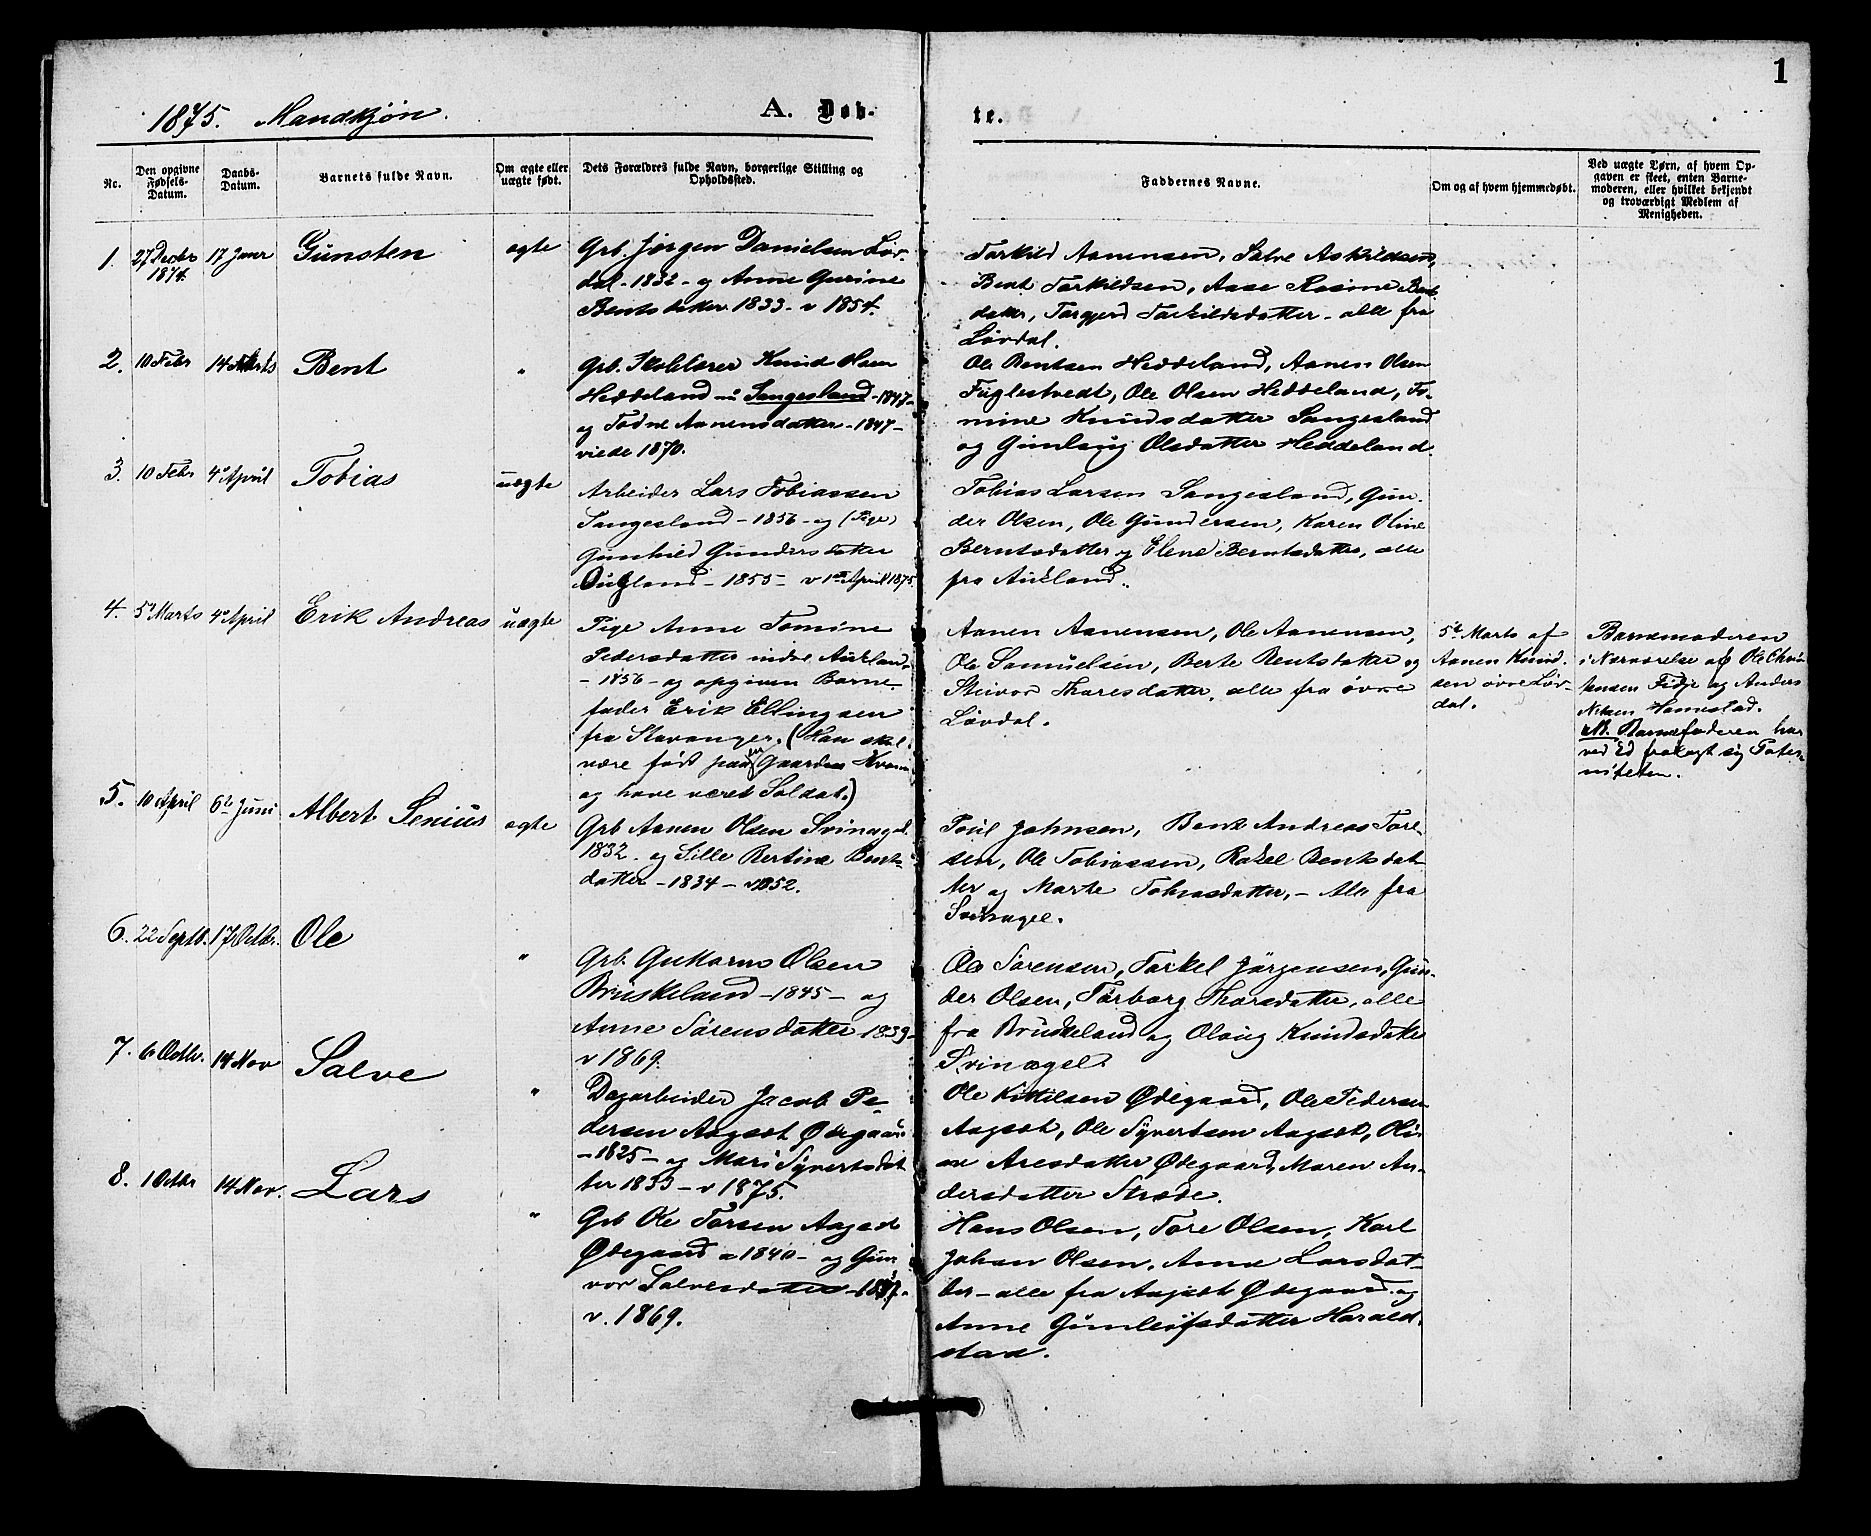 1
1875. Mandkjøn.
A. Døb-
te.
No.
Den opgivne
Fødsels-
Datum.
Daabs-
Datum.
Barnets fulde Navn.
Om ægte eller
uægte født.
Dets Forældres fulde Navn, borgerlige Stilling og
Opholdssted.
Faddernes Navne.
Om og af hvem hjemmedøbt.
Ved uægte Børn, af hvem Op-
gaven er skeet, enten Barne-
moderen, eller hvilket bekjendt
og troværdigt Medlem af
Menigheden.
1.
27 Decbr
1874.
17 Janr
Gunsten
ægte
Grb. Jørgen Danielsen Løv-
dal - 1832 - og Anne Gurine
Bentsdatter 1833 - v 1854.
Torkild Aanensen, Salve Askildsen,
Bent Torkildsen, Aase Rosine Bents
datter, Torgjerd Torkildsdatter - alle fra
Løvdal.
2.
10 Febr
14 Marts
Bent
"
Grb. Skolelærer Knud Olsen
Heddeland - Sangesland - 1847 -
og Todne Aanensdatter - 1847 -
viede 1870.
Ole Bentsen Heddeland, Aanen Olsen
Fuglestvedt, Ole Olsen Heddeland, To-
mine Knudsdatter Sangesland
og Gunlaug Olsdatter Heddeland.
3.
10 Febr
4 April
Tobias
uægte
Arbeider Lars Tobiassen
Sangesland - 1856 - og (Pige)
Gunhild Gundersdatter
Aukland - 1855 - v 1ste April 1875.
Tobias Larsen Sangesland, Gun-
der Olsen, Ole Gundersen, Karen Oline
Berntsdatter og Elene Berntsdatter, alle
fra Aukland.
4.
5 Marts
4 April
Erik Andreas
uægte
Pige Anne Tomine
Pedersdatter indre Aukland
- 1856 - og opgiven Barne-
fader Erik Ellingsen
fra Stavanger. (Han skal
være født paa Gaarden Kvam
og have været Soldat.)
Aanen Aanensen, Ole Aanensen,
Ole Samuelsen, Berte Bentsdatter og
Steivor Tharesdatter, alle fra øvre
Løvdal.
5te Marts af
Aanen Knud-
sen øvre Løv-
dal.
Barnemoderen
i Nærværelse af Ole Chris-
tensen Fidje og Anders
Nilsen Homestad.
NB. Barnefaderen har
ved Ed fralagt sig Pater-
niteten.
5.
10 April
6te Juni
Albert Senius
ægte
Grb Aanen Olsen Svinagel
1832. og Sille Bertine Bents-
datter - 1834 - v 1852.
Poul Johnsen, Bent Andreas Tore-
sen, Ole Tobiassen, Rakel Bentsdat-
ter og Marte Tobiasdatter, - Alle fra
Svinagel.
6.
22 Septb.
17 Octbr.
Ole
"
Grb. Guttorm Olsen
Bruskeland - 1845 - og
Anne Sørensdatter 1839 -
v 1869.
Ole Sørensen, Torkel Jørgensen, Gun-
der Olsen, Torborg Tharsdatter, alle
fra Bruskeland og Olaug Knudsdatter
Svinagel.
7.
6 Octbr.
14 Nov
Salve
"
Dagarbeider Jacob Pe-
dersen Aagsæt Ødegaard
- 1825 - og Mari Syvertsdat
ter 1833 - v 1875.
Ole Kittilsen Ødegaard, Ole Pedersen
Aagsæt, Ole Syvertsen Aagsæt, Oli-
ne Aresdatter Ødegaard, Maren An-
dersdatter Strøde.
8.
1 Octbr
14 Nov.
Lars
"
Grb Ole Torsen Aagsæt
Ødegaard - 1840 - og Gun-
vor Salvesdatter
v. 1869.
Hans Olsen, Tore Olsen, Karl
Johan Olsen, Anne Larsdat-
ter - alle fra Aagsæt Ødegaard og
Anne Gunleifsdatter Harald-
stad.